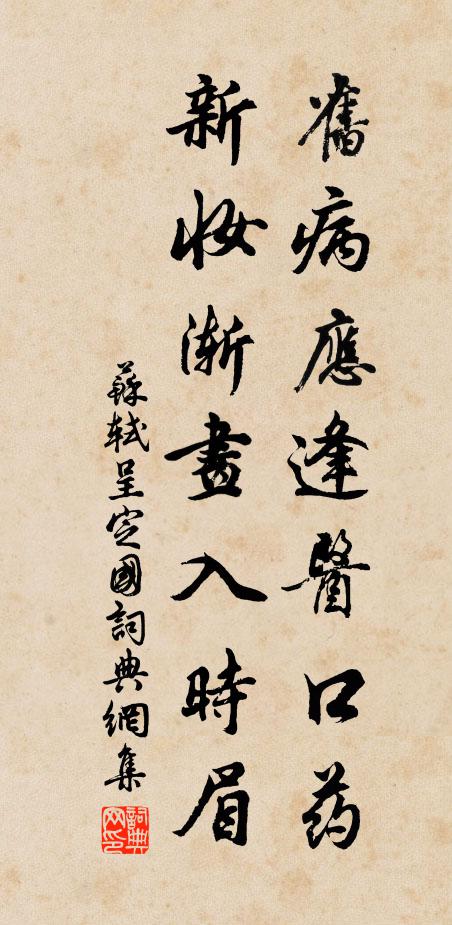 舊病應逢醫口药
新妝漸畫入時眉
蘇軾呈定國詞典網集
詞典網印